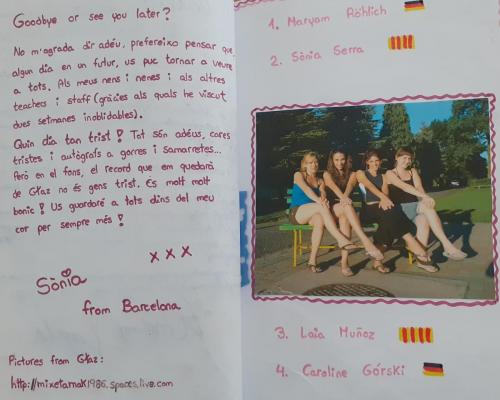 Goodbye or see you later?
No m'agrada dir adéu, prefereixo pensar que
algun dia en un futur, us puc tornar a veure
a tots. Als meus nens i nenes i als altres
teachers i staff (gràcies als quals he viscut
dues setmanes inoblidables).
Quin dia tan trist! Tot són adéus, cares
tristes i autògrafs a gorres i samarretes...
Però en el fons, el record que em quedarà
de Głaz no és gens trist. Es molt molt
bonic! Us guardaré a tots dins del meu
cor per sempre més!
x x x
Sònia
from Barcelona
Pictures from Głaz:
http://mixetamak1986.spaces.live.com
1. Maryam Röhlich
2. Sònia Serra
3. Laia Muñoz
4. Caroline Górski